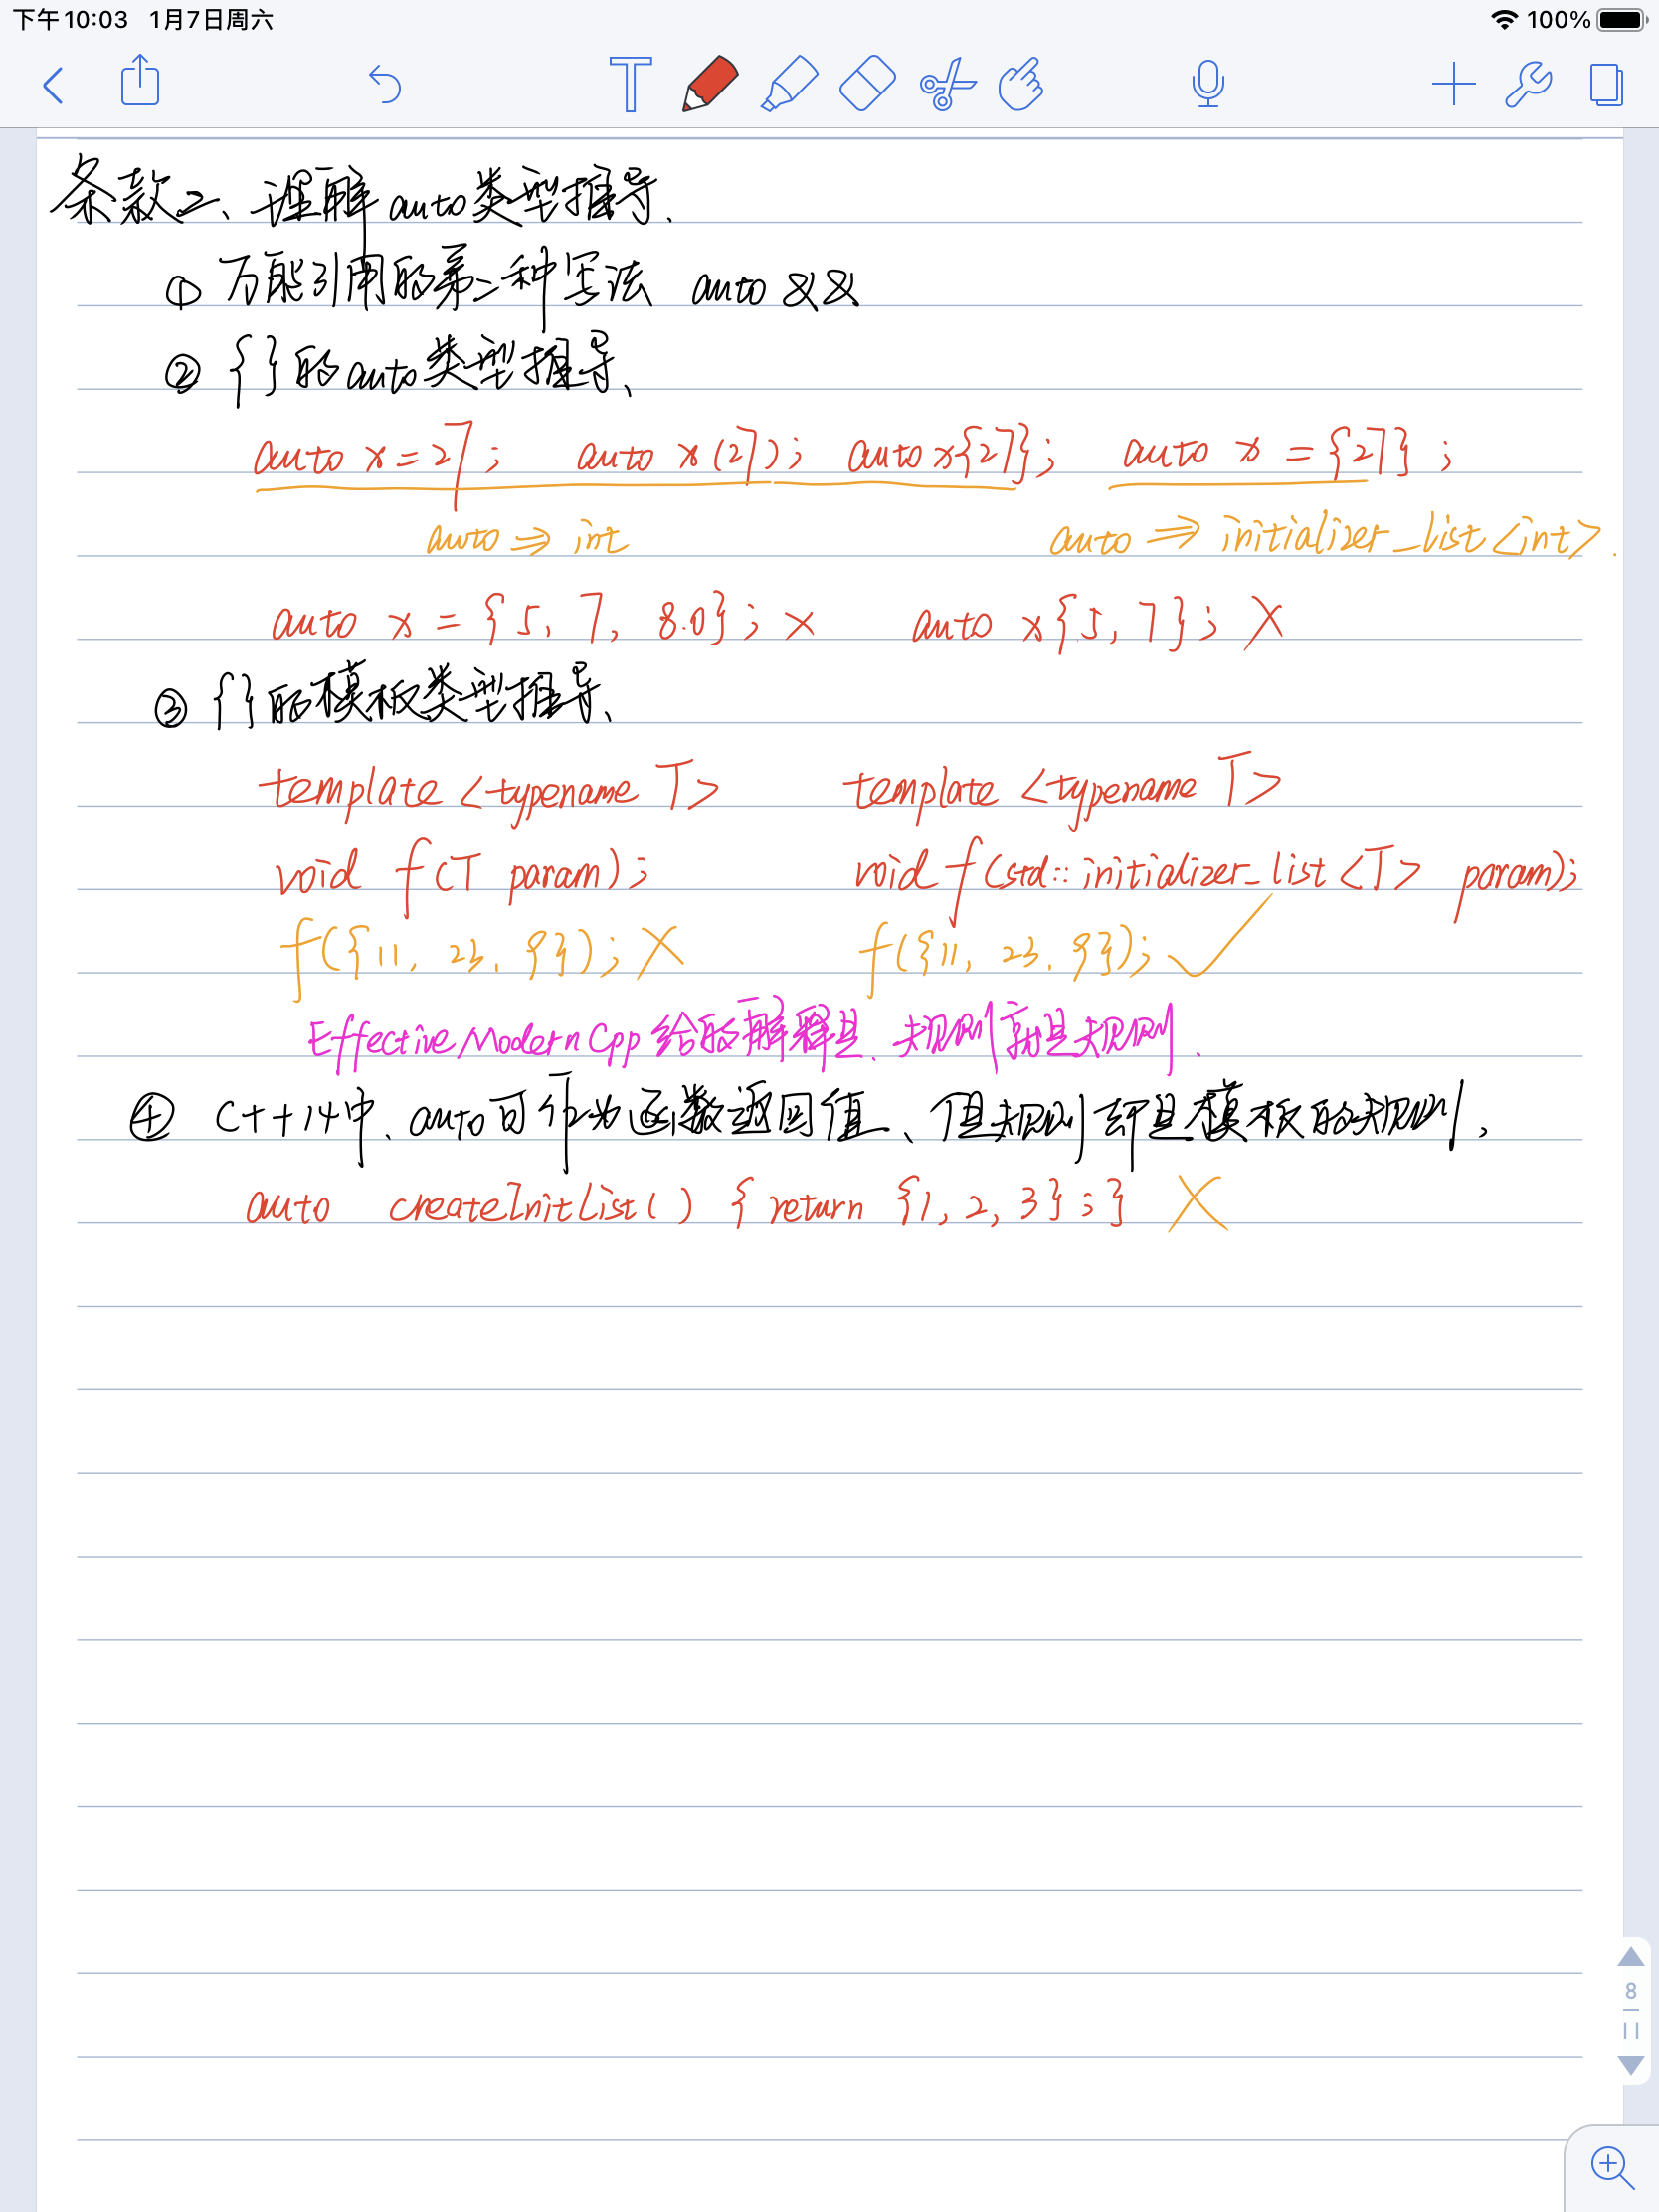 下午10:03 1月7日周六
100%
条款二、理解auto类型推导.
① 万能引用的第二种写法 auto &&
② {}的auto类型推导、
auto x=27; auto x(27); auto x{27}; auto x = {27};
auto ⇒ int auto ⇒ initializer_list<int>.
auto x = {5, 7, 8.0}; × auto x{5, 7}; ×
③ {}的模板类型推导、
template <typename T> template <typename T>
void f(T param); void f(std::initializer_list<T> param);
f({11, 23, 9}); × f({11, 23, 9}); ✓
Effective Modern Cpp 给的解释是. 规则就是规则.
④ C++14中、auto可作为函数返回值、但规则却是模板的规则,
auto createInitList() { return {1, 2, 3};} ×
8
11